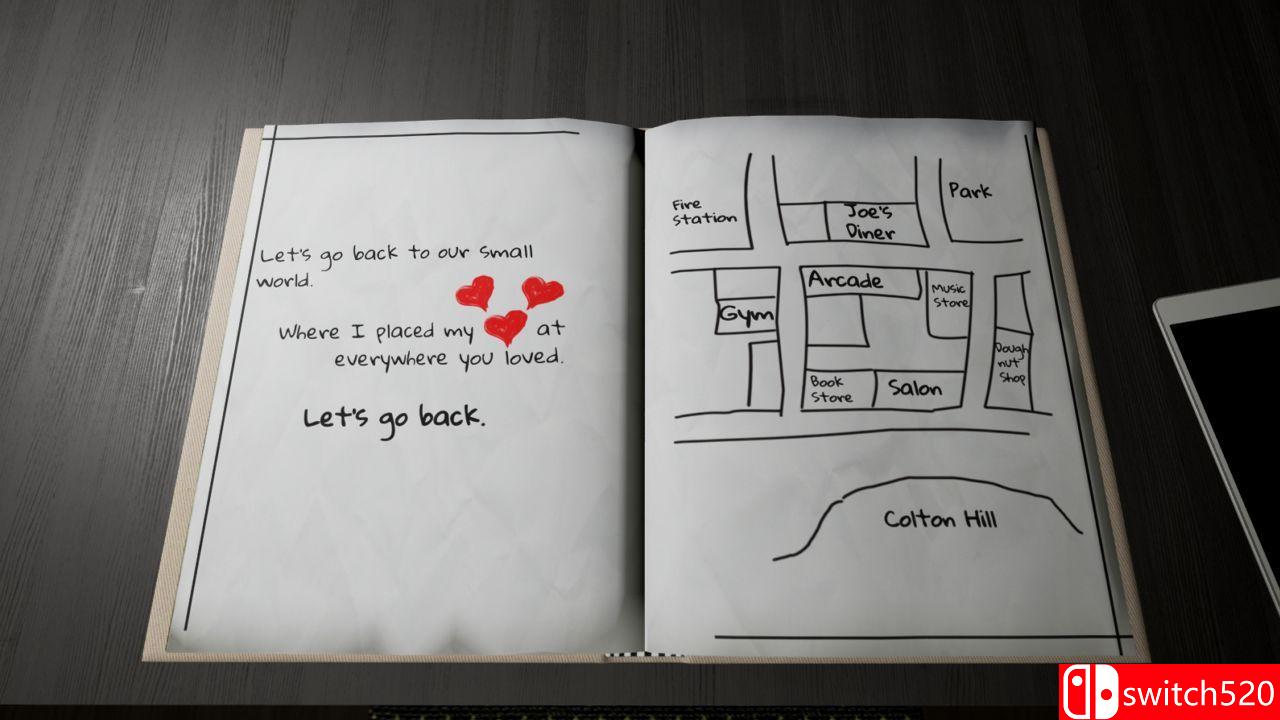 Let's go back to our small
world.
Where I placed my at
everywhere you loved.
Let's go back.
Fire
Station
Joe's
Diner
Park
Arcade
Music
Store
Gym
Dough
nut
Shop
Book
Store
Salon
Colton Hill
switch520